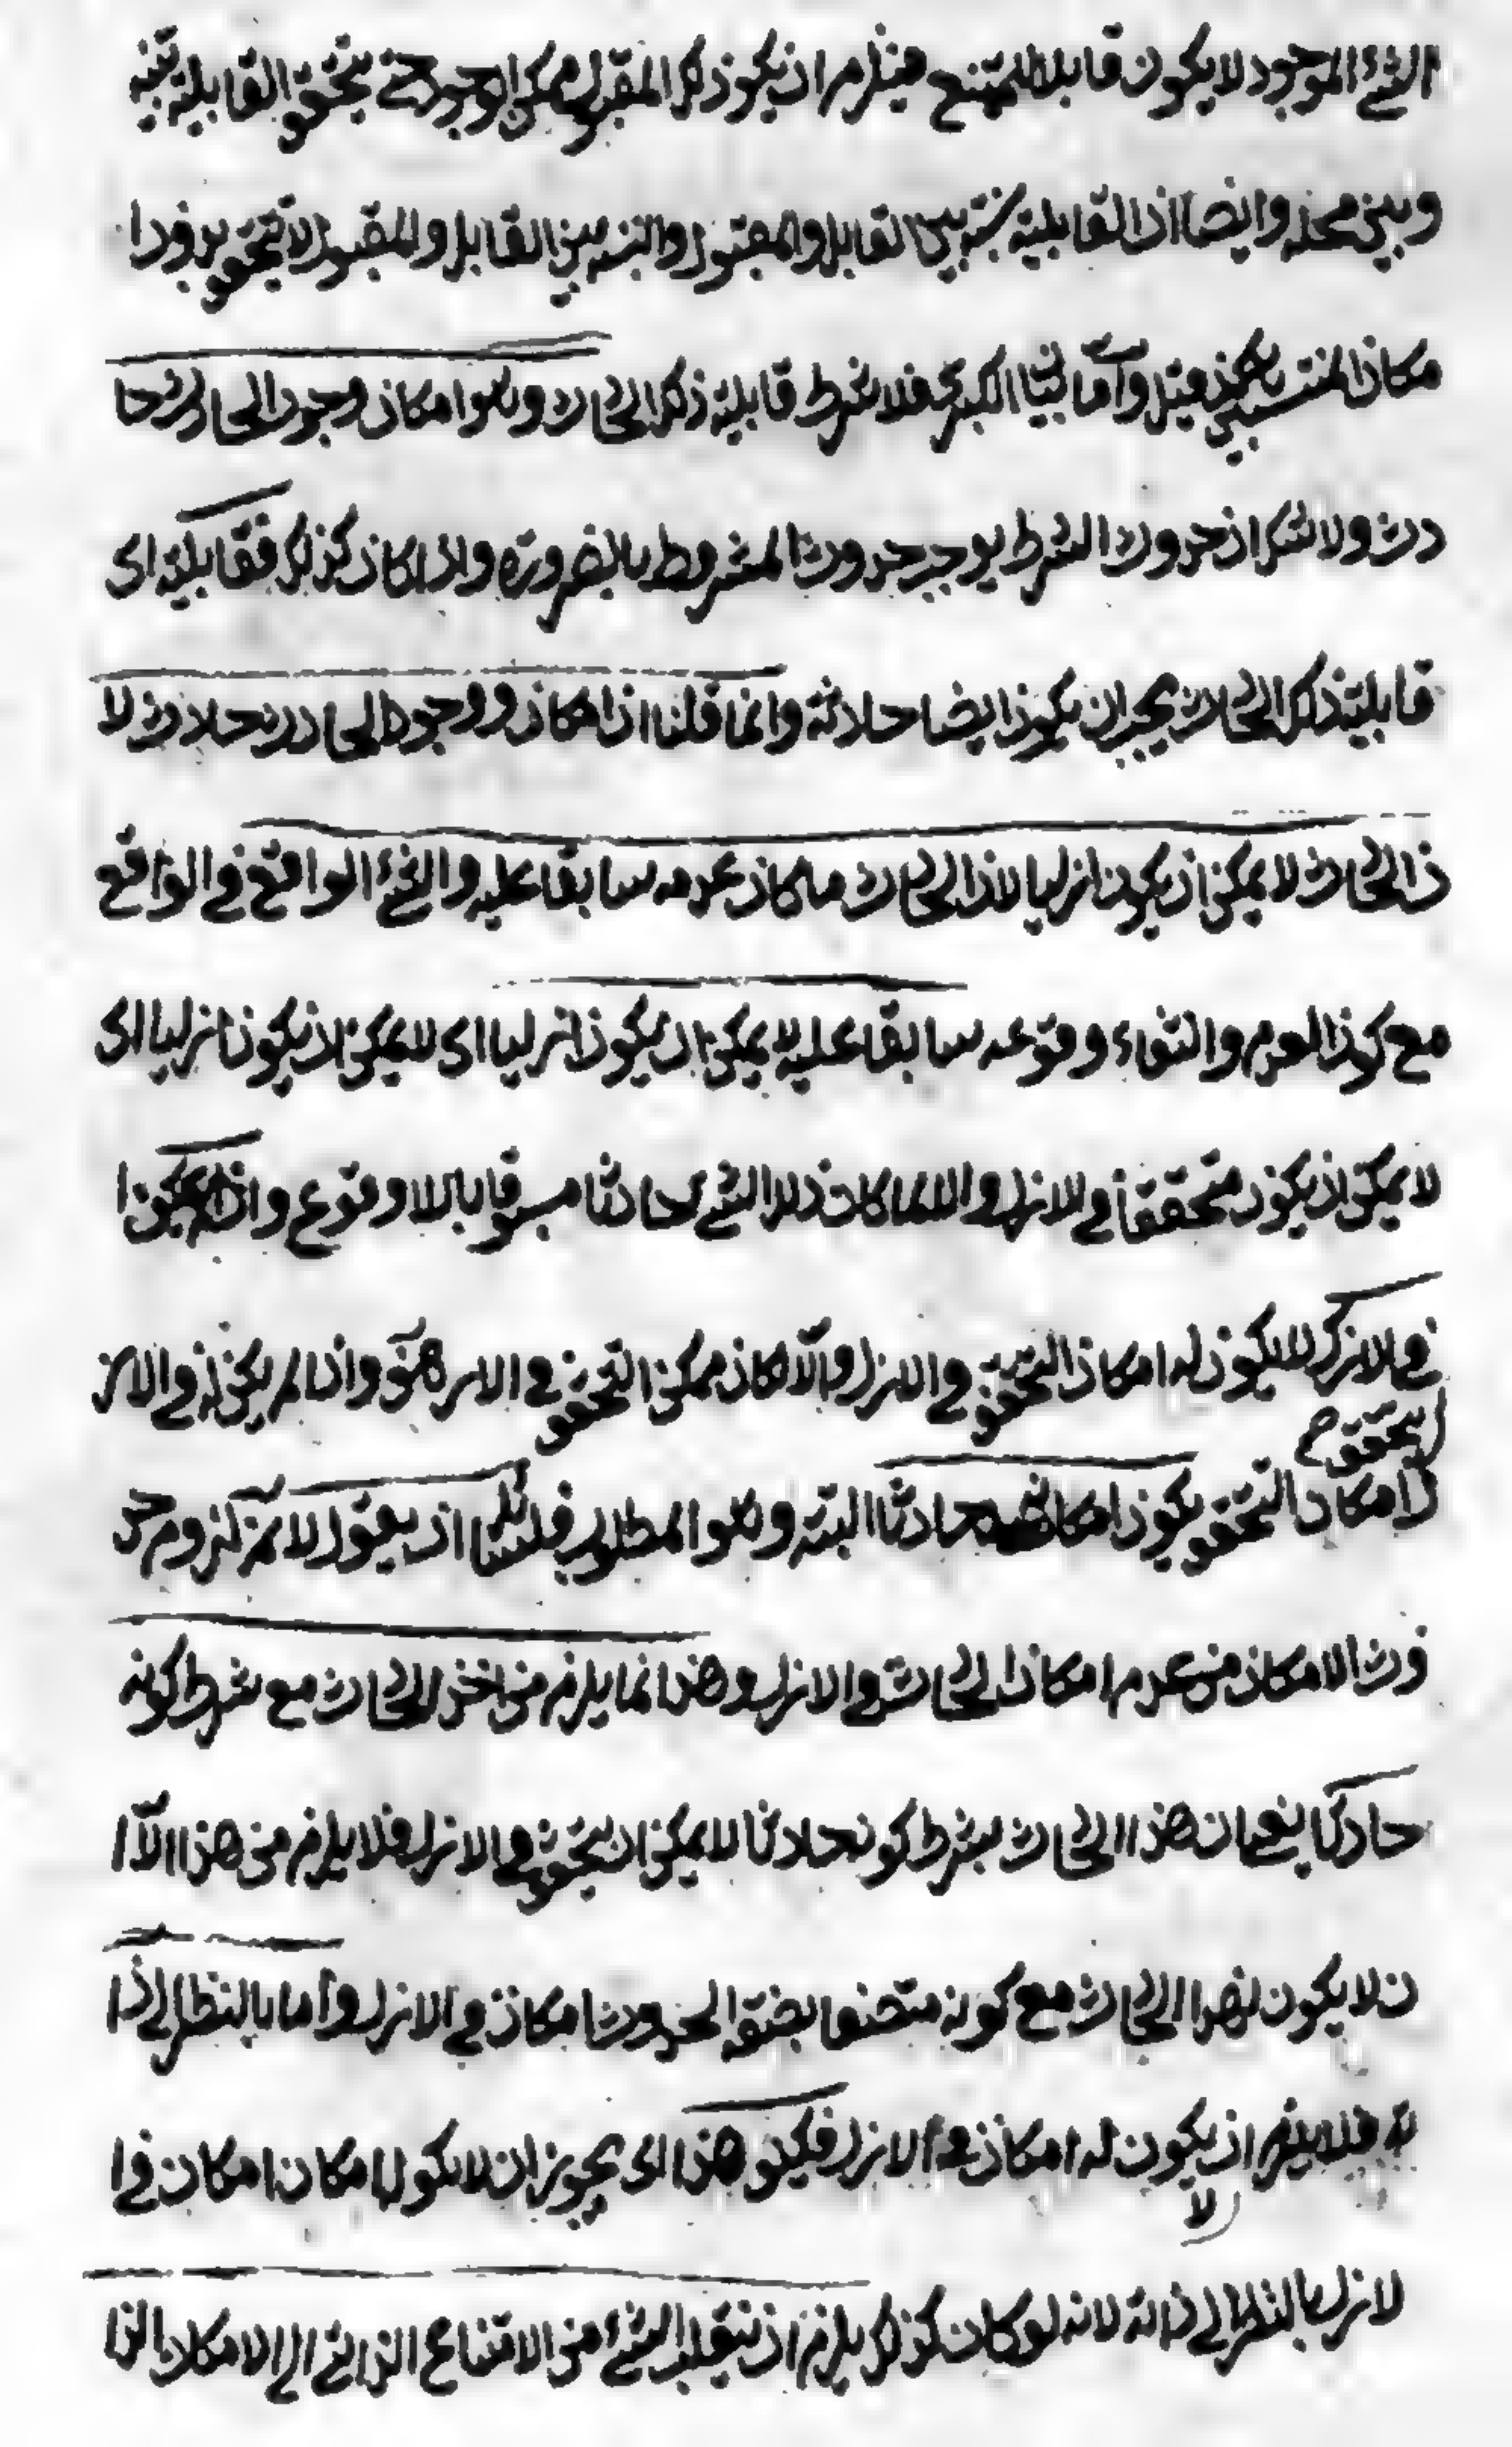 الشئ الموجود لا يكون قابلا للممتنع فيلزم ان يكون ذلك المقبول ممكن الوجود حتى يتحقق القابلية بينه
وبين محله وايضا ان القابلية نسبة بين القابل والمقبول والنسبة بين القابل والمقبول لا تتحقق بدون ا
مكان المنتسبين فيلزم واما بيان الكبرى فلان شرط قابلية ذلك الحادث وهو امكان وجود الحادث حا
دث ولا شك ان حدوث الشرط يوجب حدوث المشروط بالضرورة واذا كان كذلك فقابلية اى
قابلية ذلك الحادث يجب ان يكون ايضا حادثة وانما قلنا ان امكان وجود الحادث حادث لا
ن الحادث لا يمكن ان يكون ازليا لان الحادث ما كان عدمه سابقا عليه والشئ الواقع فى الواقع
مع كون العدم وانتفاء وقوعه سابقا عليه لا يمكن ان يكون ازليا اى لا يمكن ان يكون ازليا اى
لا يمكن ان يكون متحققا فى الازل والا لما كان ذلك الشئ حادثا مسبوقا بالا وقوع واذا لم يكن ا
فى الازل لا يكون له امكان التحقق فى الازل والا لكان ممكن التحقق فى الازل هف واذا لم يكن له فى الاز
ل امكان التحقق يكون امكانه حادثا البتة وهو المطلوب فلقائل ان يقول لا نم لزوم حد
وث الامكان من عدم امكان الحادث فى الازل وهذا انما يلزم من اخذ الحادث مع شرط كونه
حادثا يعنى ان هذا الحادث بشرط كونه حادثا لا يمكن ان يتحقق فى الازل فلا يلزم من هذا الا ا
ن لا يكون لهذا الحادث مع كونه متصفا بصفة الحدوث امكان فى الازل واما بالنظر الى ذا
ته فلا يلزم ان لا يكون له امكان فى الازل فكيف هذا اى يجوز ان لا يكون له امكان فى ا
لازل بالنظر الى ذاته لانه لو كان كذلك يلزم ان ينقلب الشئ من الامتناع الذاتى الى الامكان الذا